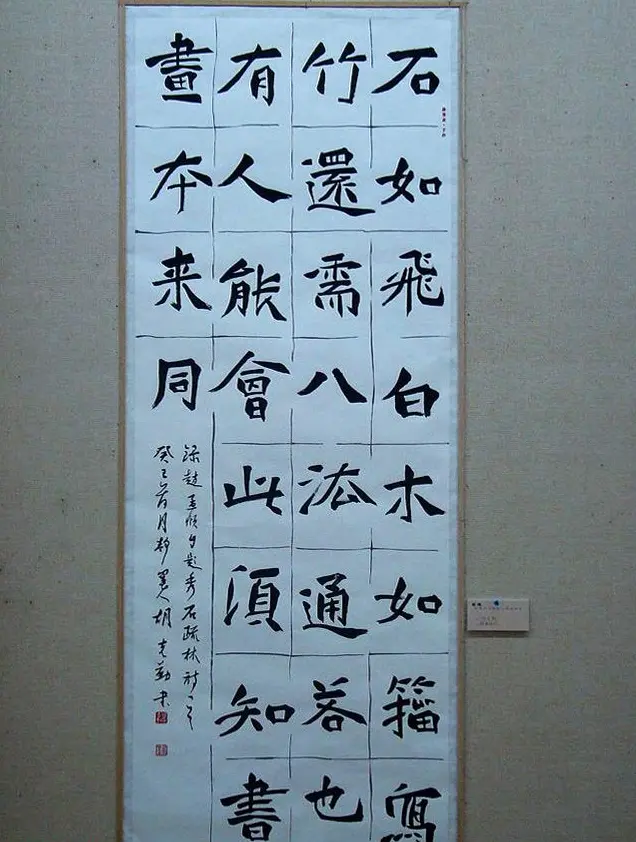 石如飛白木如籀寫
竹還需八法通若也
有人能會此須知書
畫本来同
録趙孟頫題秀石疏林詩
癸巳月人胡克勤